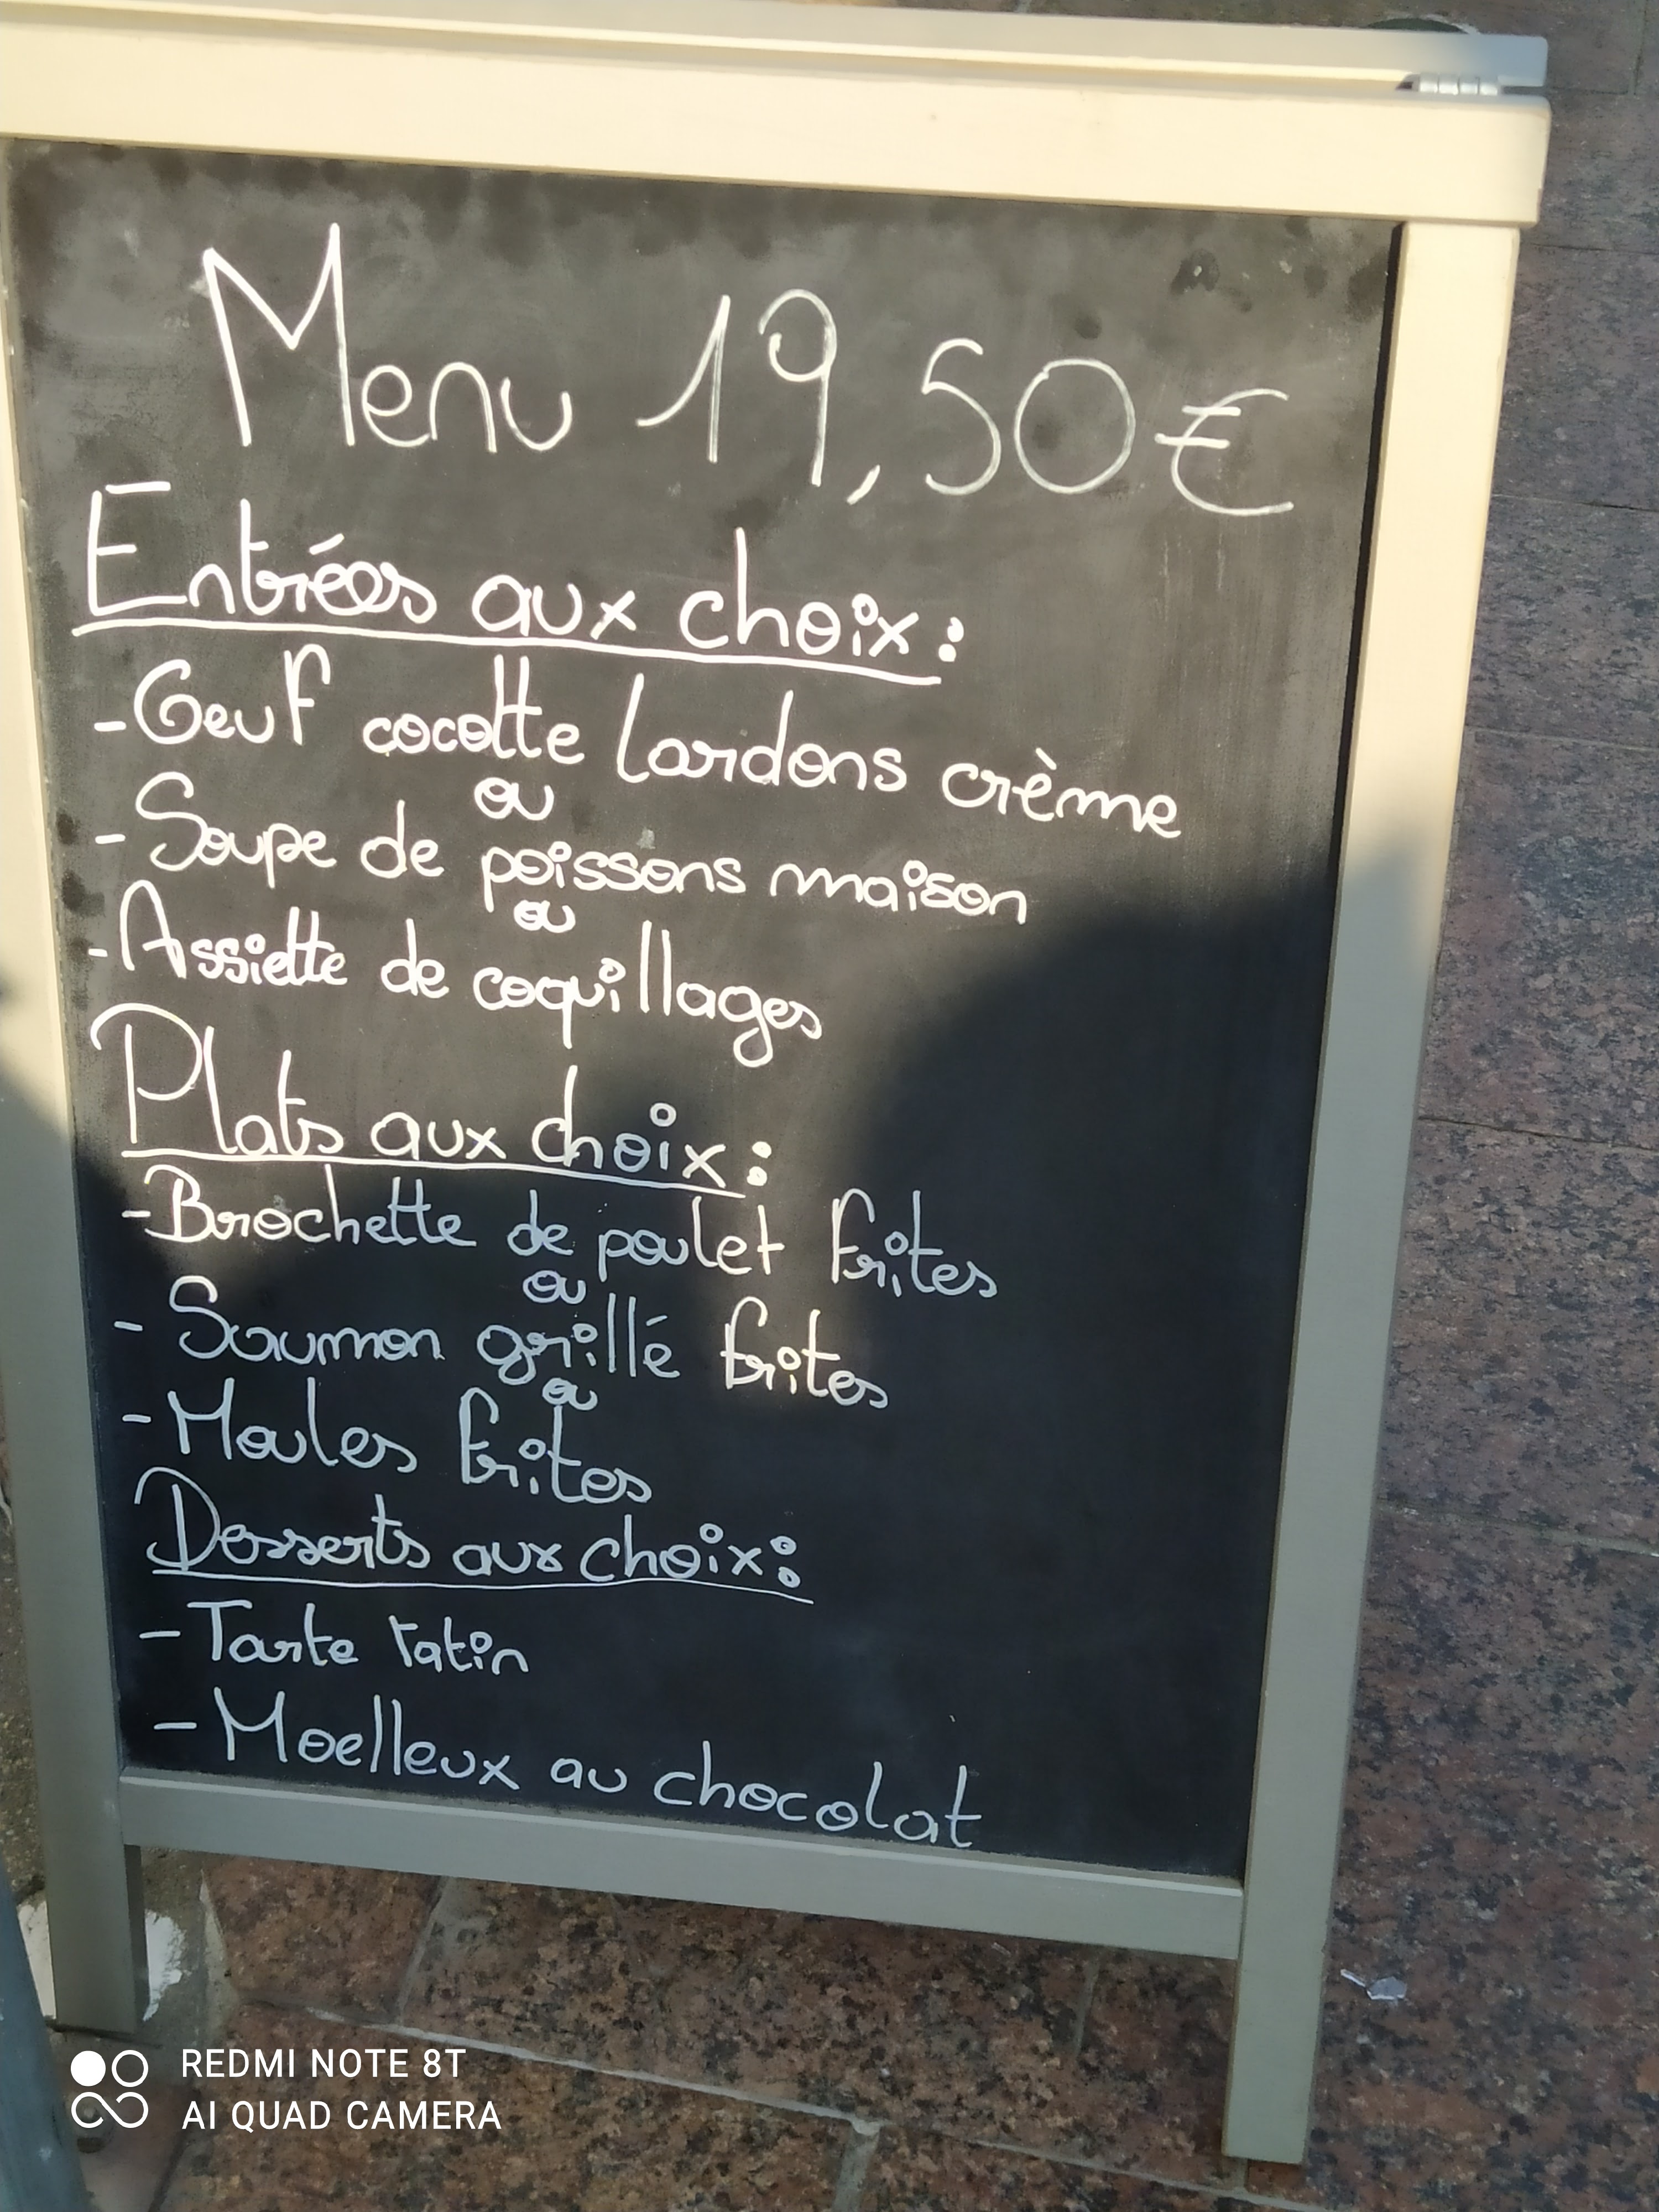 Menu 19,50€
Entrées aux choix :
- Oeuf cocotte lardons crème
ou
- Soupe de poissons maison
ou
- Assiette de coquillages
Plats aux choix :
- Brochette de poulet frites
ou
- Saumon grillé frites
ou
- Moules frites
Desserts aux choix :
- Tarte tatin
- Moelleux au chocolat
REDMI NOTE 8T
AI QUAD CAMERA